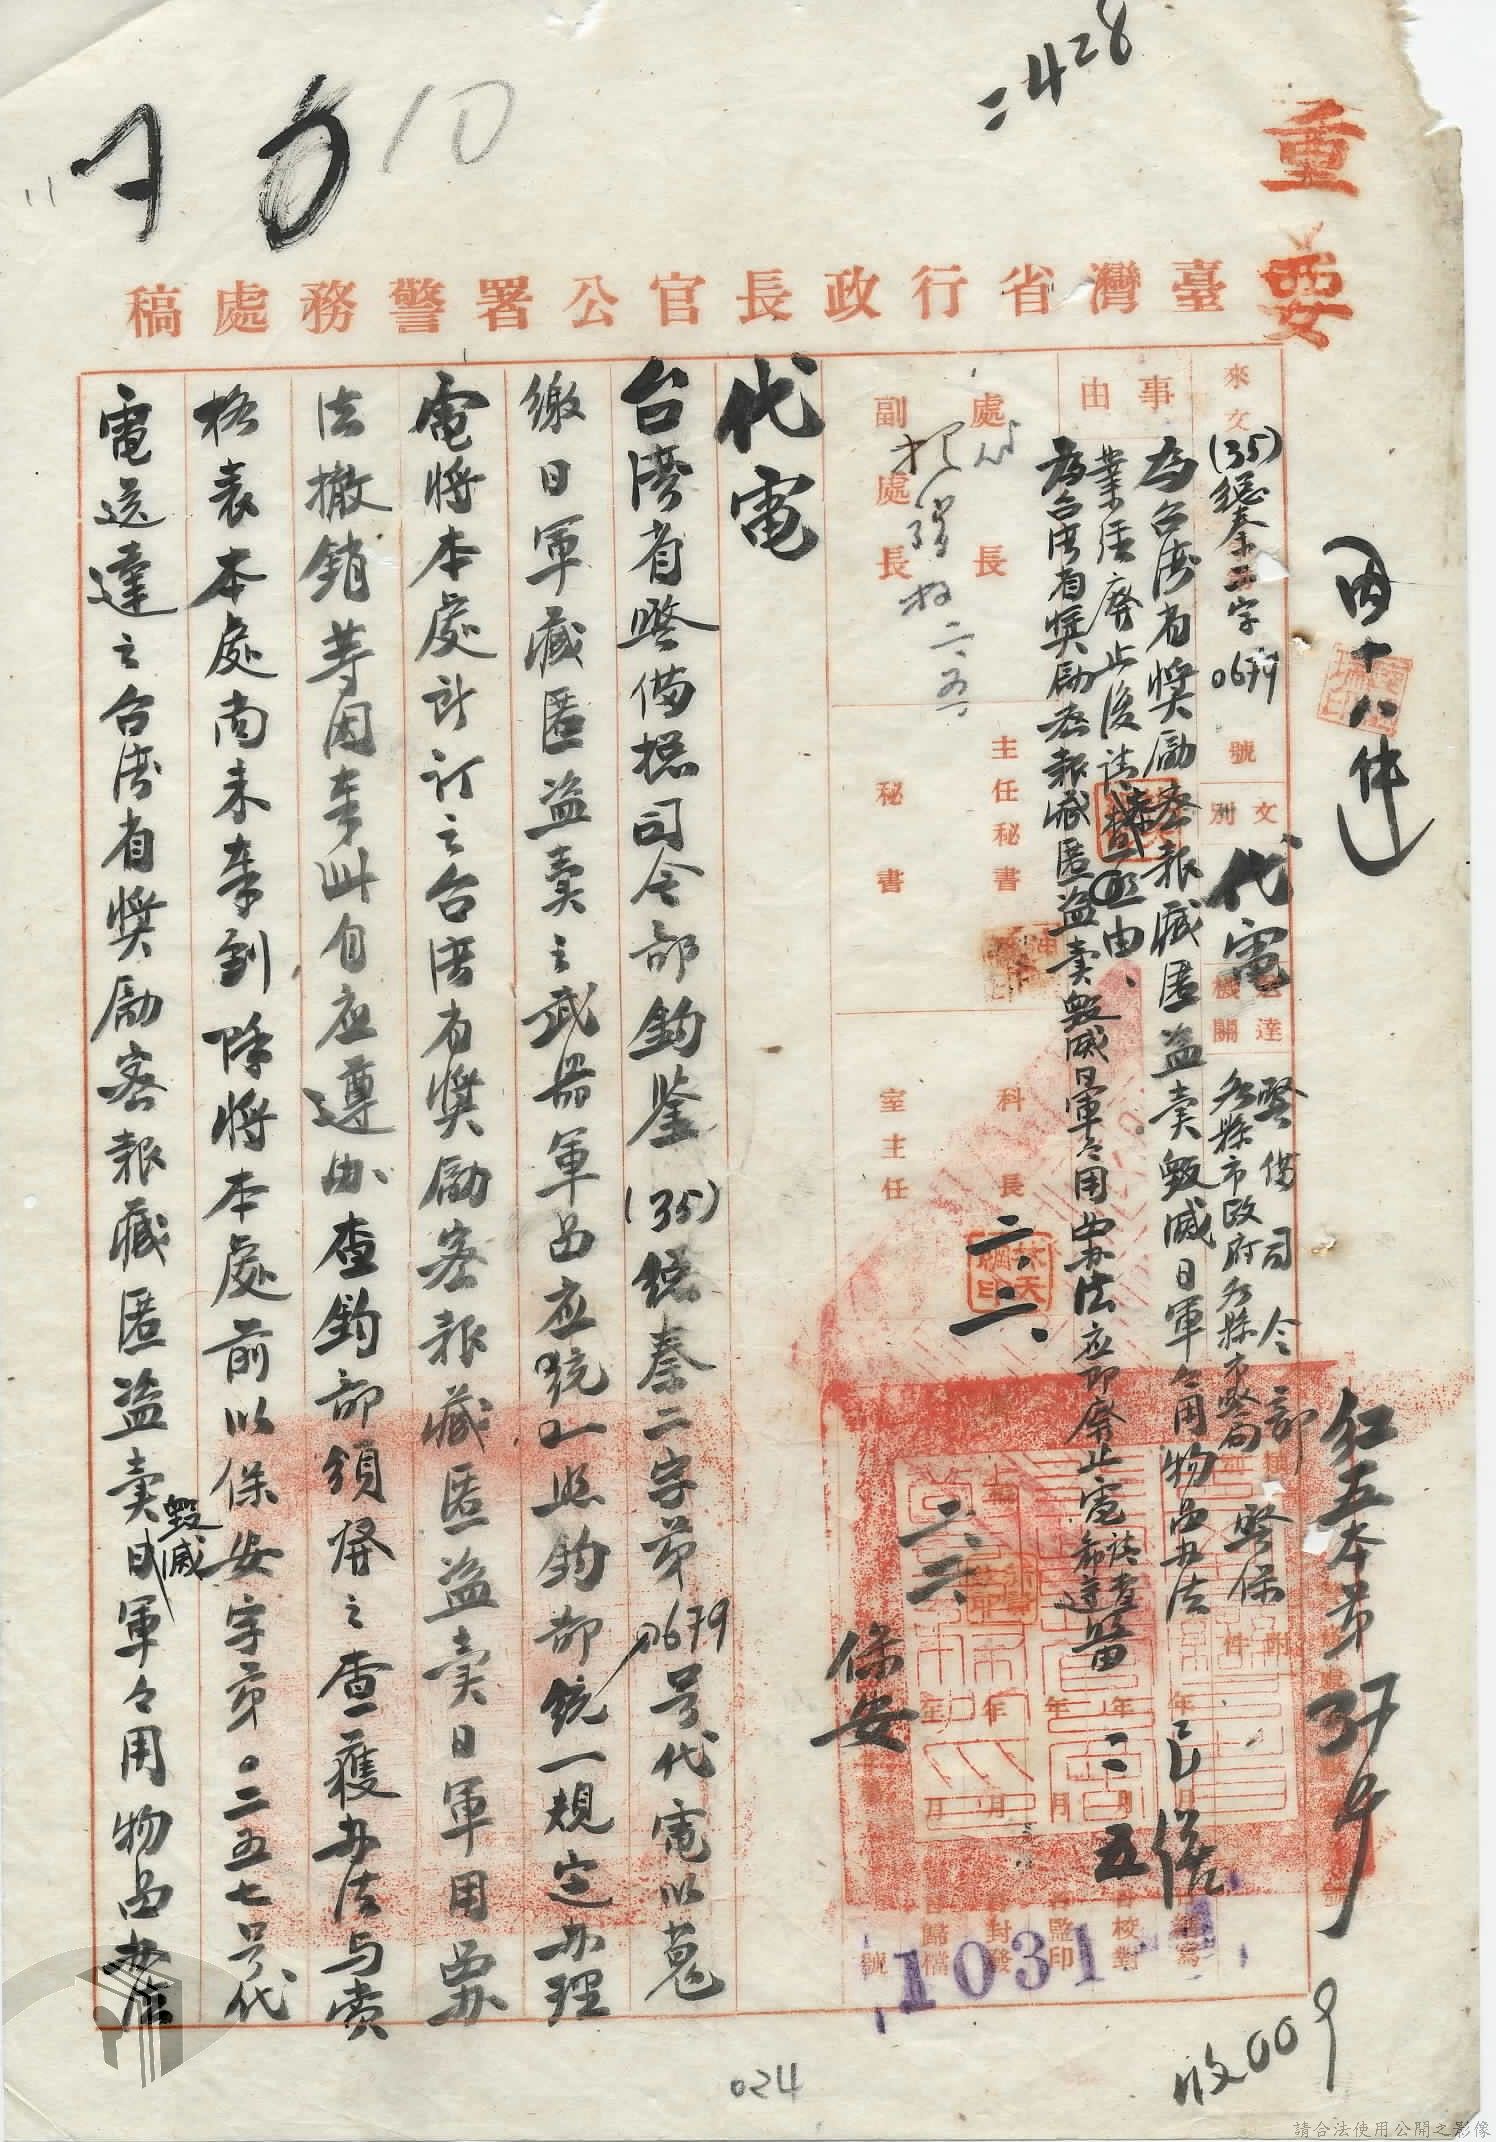 二428
10
重要
臺灣省行政長官公署警務處稿
四十八件
紅五本第37号
來文
(35)總秦二字0679號
文別
代電
送達機關
警備司令部
各縣市政府各縣市警局
警保
附件
事由
為台灣省獎勵密報藏匿盜賣毀滅日軍々用物品办法
業經廢止後請由
為台灣省獎勵密報藏匿盜賣毀滅日軍々用品办法應即廢止電請查照希遵
處長
副處長
二.五
主任秘書
秘書
科長
室主任
二.二
二.六
保安
年月
年月
年月
年月
年月
二五
繕寫
校對
監印
封發
歸檔
號
1031
代電
台灣省警備總司令部鈞鑒(35)總秦二字第0679号代電以蒐
繳日軍藏匿盜賣之武器軍品应統一照鈞部統一規定办理
電將本處計訂之台灣省獎勵密報藏匿盜賣日軍用品办
法撤銷等因奉此自应遵办查鈞部須發之查獲办法与賞
格表本處尚未奉到除將本處前以保安字第〇二五七号代
電送達之台灣省獎勵密報藏匿盜賣毀滅日軍々用物品办法
收009
024
請合法使用公開之影像